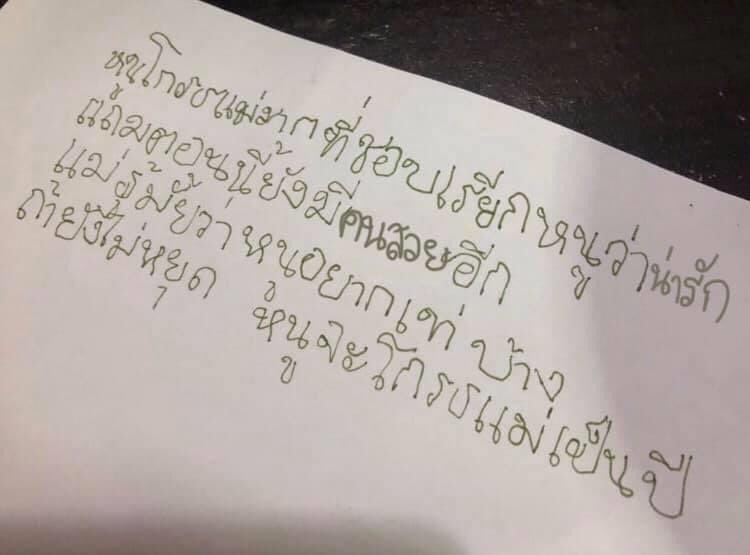 หนูโกรธแม่มากที่ชอบเรียกหนูว่าน่ารัก
แถมตอนนี้ยังมีคนสวยอีก
แม่รู้มั้ยว่าหนูอยากเท่ บ้าง
ถ้ายังไม่หยุด หนูจะโกรธแม่เป็นปี